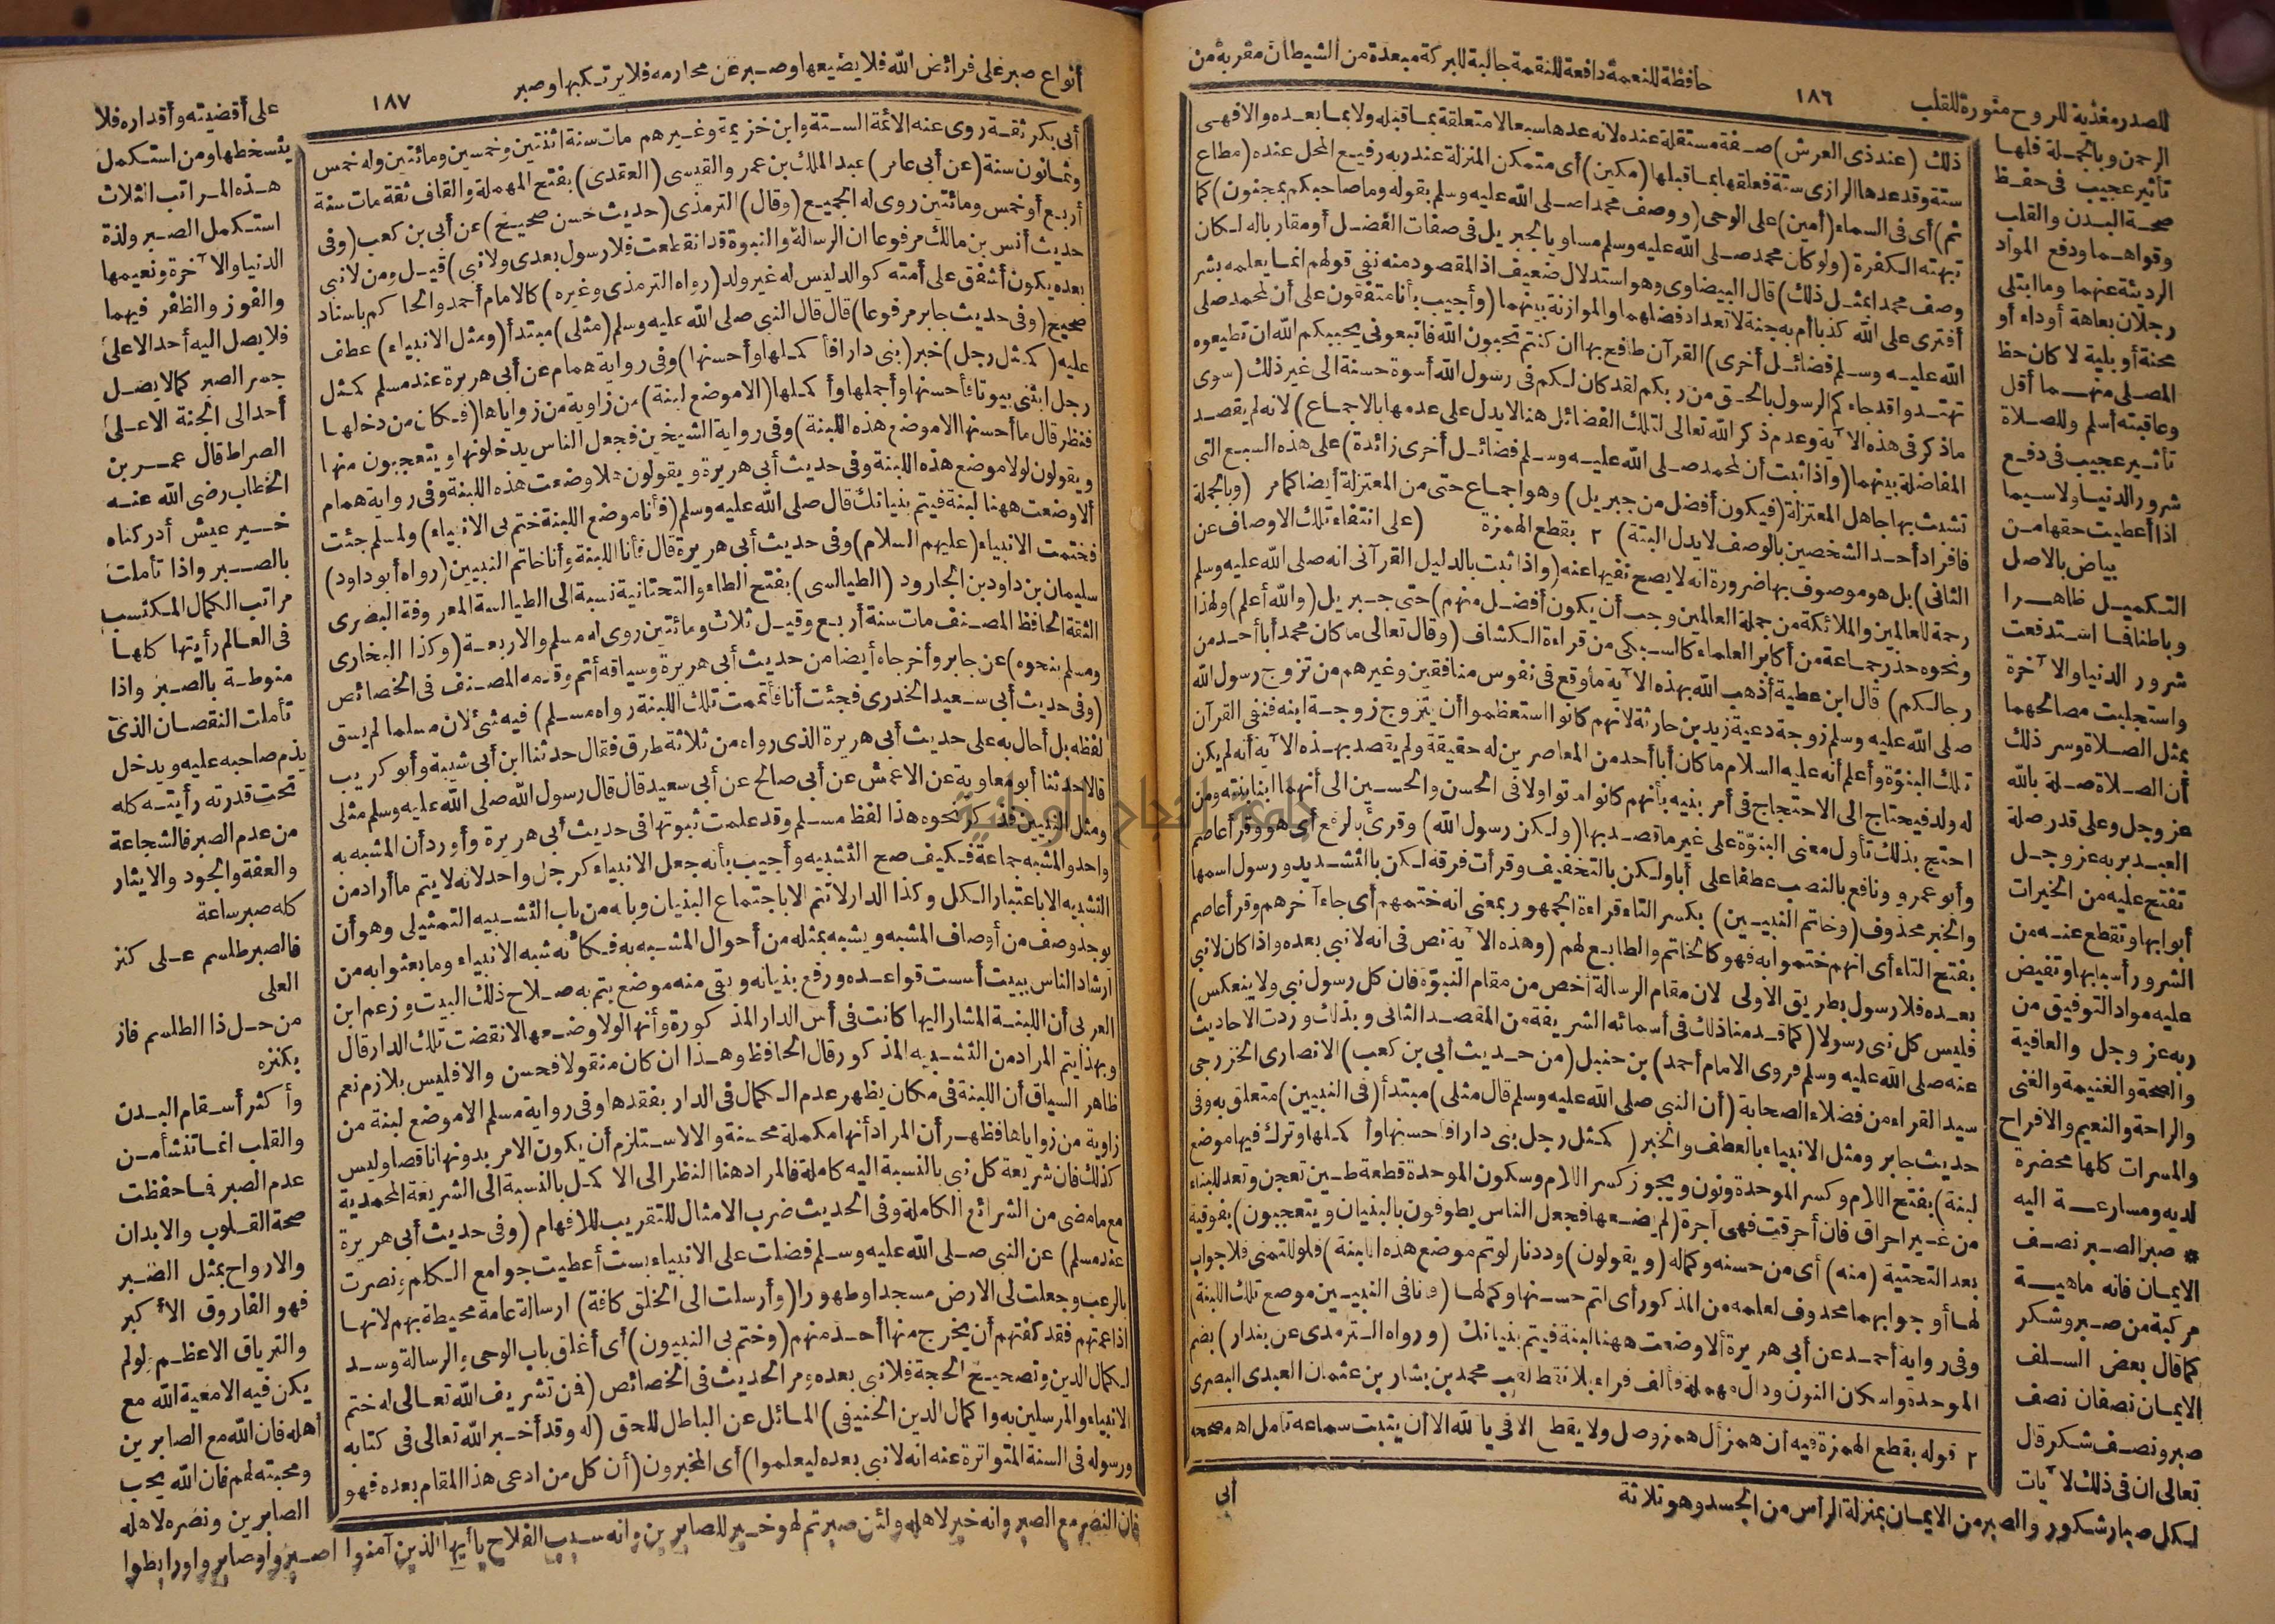 حافظة للنعمة دافعة للنقمة جالبة للبركة مبعدة من الشيطان مقربة من
١٨٦
للصدر مغذية للروح منورة للقلب
الرحمن وبالجملة فلها
تأثير عجيب فى حفظ
صحة البدن والقلب
وقواهما ودفع المواد
الرديئة عنهما وما ابتلى
رجلان بعاهة أوداء أو
محنة أو بلية لا كان حظ
المصلى منهما أقل
وعاقبته أسلم وللصلاة
تأثير عجيب فى دفع
شرور الدنيا ولاسيما
اذا أعطيت حقها من
بياض بالاصل
التكميل ظاهرا
وباطنا فما استدفعت
شرور الدنيا والآخرة
واستجلبت مصالحهما
بمثل الصلاة وسر ذلك
أن الصلاة صلة بالله
عز وجل وعلى قدر صلة
العبد بربه عز وجل
تفتح عليه من الخيرات
أبوابها وتقطع عنه من
الشرور أسبابها وتفيض
عليه مواد التوفيق من
ربه عز وجل والعافية
والصحة والغنيمة والغنى
والراحة والنعيم والافراح
والمسرات كلها محضرة
لديه ومسارعة اليه
* صبر الصبر نصف
الايمان فانه ماهية
مركبة من صبر وشكر
كما قال بعض السلف
الايمان نصفان نصف
صبر ونصف شكر قال
تعالى ان فى ذلك لآيات
لكل صبار شكور والصبر من الايمان بمنزلة الرأس من الجسد وهو ثلاثة
ذلك (عند ذى العرش) صفة مستقلة عنده لانه عدها سبعا لا متعلقة بما قبله ولا بما بعده والا فهى
ستة وقد عدها الرازى ستة فعلقها بما قبلها (مكين) أى متمكن المنزلة عند ربه رفيع المحل عنده (مطاع
ثم) أى فى السماء (أمين) على الوحى (ووصف محمدا صلى الله عليه وسلم بقوله وما صاحبكم بمجنون) كما
تبهته الكفرة (ولو كان محمد صلى الله عليه وسلم مساويا لجبريل فى صفات الفضل أو مقاربا له لكان
وصف محمدا بمثل ذلك) قال البيضاوى وهو استدلال ضعيف اذ المقصود منه نفى قولهم انما يعلمه بشر
أفترى على الله كذبا أم به جنة لا تعداد فضلهما والموازنة بينهما (وأجيب بأنا متفقون على أن لمحمد صلى
الله عليه وسلم فضائل أخرى) القرآن طافح بها ان كنتم تحبون الله فاتبعونى يحببكم الله ان تطيعوه
تهتدوا قد جاءكم الرسول بالحق من ربكم لقد كان لكم فى رسول الله أسوة حسنة الى غير ذلك (سوى
ماذكر فى هذه الآية وعدم ذكر الله تعالى لتلك الفضائل هنا لا يدل على عدمها بالاجماع) لانه لم يقصد
المفاضلة بينهما (واذا ثبت أن لمحمد صلى الله عليه وسلم فضائل أخرى زائدة) على هذه السبع التى
تشبث بها جاهل المعتزلة (فيكون أفضل من جبريل) وهو اجماع حتى من المعتزلة أيضا كما مر (وبالجملة
فافراد أحد الشخصين بالوصف لا يدل البتة) ٢ بقطع الهمزة (على انتفاء تلك الاوصاف عن
الثانى) بل هو موصوف بها ضرورة انه لا يصح نفيها عنه (واذا ثبت بالدليل القرآنى انه صلى الله عليه وسلم
رحمة للعالمين والملائكة من جملة العالمين وجب أن يكون أفضل منهم) حتى جبريل (والله أعلم) ولهذا
ونحوه حذر جماعة من أكابر العلماء كالسبكى من قراءة الكشاف (وقال تعالى ما كان محمد أبا أحد من
رجالكم) قال ابن عطية أذهب الله بهذه الآية ما وقع فى نفوس منافقين وغيرهم من تزوج رسول الله
صلى الله عليه وسلم زوجة دعية زيد بن حارثة لانهم كانوا استعظموا أن يتزوج زوجة ابنه فنفى القرآن
تلك البنوة وأعلم أنه عليه السلام ما كان أبا أحد من المعاصرين له حقيقة ولم يقصد بهذه الآية أنه لم يكن
له ولد فيحتاج الى الاحتجاج فى أمر بنيه بأنهم كانوا ماتوا ولا فى الحسن والحسين الى أنهما ابنا بنته ومن
احتج بذلك تأول معنى البنوة على غير ما قصد بها (ولكن رسول الله) وقرئ بالرفع أى هو وقرأ عاصم
وأبو عمرو ونافع بالنصب عطفا على أبا ولكن بالتخفيف وقرأت فرقة لكن بالتشديد ورسول اسمها
والخبر محذوف (وخاتم النبيين) بكسر التاء قراءة الجمهور بمعنى انه ختمهم أى جاء آخرهم وقرأ عاصم
بفتح التاء أى انهم ختموا به فهو كالخاتم والطابع لهم (وهذه الآية نص فى انه لا نبى بعده واذا كان لا نبى
بعده فلا رسول بطريق الاولى لان مقام الرسالة أخص من مقام النبوة فان كل رسول نبى ولا ينعكس)
فليس كل نبى رسولا (كما قدمنا ذلك فى أسمائه الشريفة من المقصد الثانى وبذلك وردت الاحاديث
عنه صلى الله عليه وسلم فروى الامام أحمد) بن حنبل (من حديث أبى بن كعب) الانصارى الخزرجى
سيد القراء من فضلاء الصحابة (أن النبى صلى الله عليه وسلم قال مثلى) مبتدأ (فى النبيين) متعلق به وفى
حديث جابر ومثل الانبياء بالعطف والخبر (كمثل رجل بنى دارا فأحسنها وأكملها وترك فيها موضع
لبنة) بفتح اللام وكسر الموحدة ونون ويجوز كسر اللام وسكون الموحدة قطعة طين تعجن وتعد للبناء
من غير احراق فان أحرقت فهى آجرة (لم يضعها فجعل الناس يطوفون بالبنيان ويتعجبون) بفوقية
بعد التحتية (منه) أى من حسنه وكماله (ويقولون) وددنا (لوتم موضع هذه اللبنة) فلو للتمنى فلا جواب
لها أو جوابها محذوف لعلمه من المذكور أى لتم حسنها وكملها (فأنا فى النبيين موضع تلك اللبنة)
وفى رواية أحمد عن أبى هريرة ألا وضعت ههنا لبنة فيتم بنيانك (ورواه الترمذى عن بندار) بضم
الموحدة واسكان النون ودال مهملة فألف فراء بلا نقط لقب محمد بن بشار بن عثمان العبدى البصرى
٢ قوله بقطع الهمزة فيه أن همزأل همز وصل ولا يقطع الا فى يا لله الا أن يثبت سماعه تأمل اه مصححه
أبى
أنواع صبر على فرائض الله فلا يضيعها وصبر عن محارمه فلا يرتكبها وصبر
١٨٧
على أقضيته وأقداره فلا
يتسخطها ومن استكمل
هذه المراتب الثلاث
استكمل الصبر ولذة
الدنيا والآخرة ونعيمها
والفوز والظفر فيهما
فلا يصل اليه أحد الا على
جسر الصبر كما لا يصل
أحد الى الجنة الا على
الصراط قال عمر بن
الخطاب رضى الله عنه
خير عيش أدركناه
بالصبر واذا تأملت
مراتب الكمال المكتسب
فى العالم رأيتها كلها
منوطة بالصبر واذا
تأملت النقصان الذى
يذم صاحبه عليه ويدخل
تحت قدرته رأيته كله
من عدم الصبر فالشجاعة
والعفة والجود والايثار
كله صبر ساعة
فالصبر طلسم على كنز
العلى
من حل ذا الطلسم فاز
بكنزه
وأكثر أسقام البدن
والقلب انما تنشأ من
عدم الصبر فما حفظت
صحة القلوب والابدان
والارواح بمثل الصبر
فهو الفاروق الأكبر
والترياق الاعظم ولو لم
يكن فيه الا معية الله مع
أهله فان الله مع الصابرين
ومحبته لهم فان الله يحب
الصابرين ونصره لاهله
فان النصر مع الصبر وانه خير لاهله ولئن صبرتم لهو خير للصابرين وانه سبب الفلاح يا أيها الذين آمنوا اصبروا وصابروا ورابطوا
أبى بكر ثقة روى عنه الائمة الستة وابن خزيمة وغيرهم مات سنة اثنتين وخمسين ومائتين وله خمس
وثمانون سنة (عن أبى عامر) عبد الملك بن عمرو القيسى (العقدى) بفتح المهملة والقاف ثقة مات سنة
أربع أو خمس ومائتين روى له الجميع (وقال) الترمذى (حديث حسن صحيح) عن أبى بن كعب (وفى
حديث أنس بن مالك مرفوعا ان الرسالة والنبوة قد انقطعت فلا رسول بعدى ولا نبى) قيل ومن لا نبى
بعده يكون أشفق على أمته كوالد ليس له غير ولد (رواه الترمذى وغيره) كالامام أحمد والحاكم باسناد
صحيح (وفى حديث جابر مرفوعا) قال قال النبى صلى الله عليه وسلم (مثلى) مبتدأ (ومثل الانبياء) عطف
عليه (كمثل رجل) خبر (بنى دارا فأكملها وأحسنها) وفى رواية همام عن أبى هريرة عند مسلم كمثل
رجل ابتنى بيوتا فأحسنها وأجملها وأكملها (الا موضع لبنة) من زاوية من زواياها (فكان من دخلها
فنظر قال ما أحسنها الا موضع هذه اللبنة) وفى رواية الشيخين فجعل الناس يدخلونها ويتعجبون منها
ويقولون لولا موضع هذه اللبنة وفى حديث أبى هريرة ويقولون هلا وضعت هذه اللبنة وفى رواية همام
ألا وضعت ههنا لبنة فيتم بنيانك قال صلى الله عليه وسلم (فأنا موضع اللبنة ختم بى الانبياء) ولمسلم جئت
فختمت الانبياء (عليهم السلام) وفى حديث أبى هريرة قال فأنا اللبنة وأنا خاتم النبيين (رواه أبو داود)
سليمان بن داود بن الجارود (الطيالسى) بفتح الطاء والتحتانية نسبة الى الطيالسة المعروفة البصرى
الثقة الحافظ المصنف مات سنة أربع وقيل ثلاث ومائتين روى له مسلم والاربعة (وكذا البخارى
ومسلم بنحوه) عن جابر وأخرجاه أيضا من حديث أبى هريرة وسياقه أتم وقدمه المصنف فى الخصائص
(وفى حديث أبى سعيد الخدرى فجئت أنا فأتممت تلك اللبنة رواه مسلم) فيه شئ لان مسلما لم يسق
لفظه بل أحال به على حديث أبى هريرة الذى رواه من ثلاثة طرق فقال حدثنا ابن أبى شيبة وأبو كريب
قالا حدثنا أبو معاوية عن الاعمش عن أبى صالح عن أبى سعيد قال قال رسول الله صلى الله عليه وسلم مثلى
ومثل النبيين فذكر نحوه هذا لفظ مسلم وقد علمت ثبوتها فى حديث أبى هريرة وأورد أن المشبه به
واحد والمشبه جماعة فكيف صح التشبيه وأجيب بأنه جعل الانبياء كرجل واحد لانه لا يتم ما أراد من
التشبيه الا باعتبار الكل وكذا الدار لا تتم الا باجتماع البنيان وبأنه من باب التشبيه التمثيلى وهو أن
يوجد وصف من أوصاف المشبه ويشبه بمثله من أحوال المشبه به فكأنه شبه الانبياء وما بعثوا به من
ارشاد الناس ببيت أسست قواعده ورفع بنيانه وبقى منه موضع يتم به صلاح ذلك البيت وزعم ابن
العربى أن اللبنة المشار اليها كانت فى أس الدار المذكورة وأنها لولا وضعها لانقضت تلك الدار قال
وبهذا يتم المراد من التشبيه المذكور قال الحافظ وهذا ان كان منقولا فحسن والا فليس بلازم نعم
ظاهر السياق أن اللبنة فى مكان يظهر عدم الكمال فى الدار بفقدها وفى رواية مسلم الا موضع لبنة من
زاوية من زواياها فظهر أن المراد أنها مكملة محسنة والا لاستلزم أن يكون الامر بدونها ناقصا وليس
كذلك فان شريعة كل نبى بالنسبة اليه كاملة فالمراد هنا النظر الى الاكمل بالنسبة الى الشريعة المحمدية
مع ما مضى من الشرائع الكاملة وفى الحديث ضرب الامثال للتقريب للافهام (وفى حديث أبى هريرة
عند مسلم) عن النبى صلى الله عليه وسلم فضلت على الانبياء بست أعطيت جوامع الكلم ونصرت
بالرعب وجعلت لى الارض مسجدا وطهورا (وأرسلت الى الخلق كافة) ارسالة عامة محيطة بهم لانها
اذا عمتهم فقد كفتهم أن يخرج منها أحد منهم (وختم بى النبيون) أى أغلق باب الوحى والرسالة وسد
لكمال الدين وتصحيح الحجة فلا نبى بعده ومر الحديث فى الخصائص (فمن تشريف الله تعالى له ختم
الانبياء والمرسلين به واكمال الدين الحنيفى) المائل عن الباطل للحق (له وقد أخبر الله تعالى فى كتابه
ورسوله فى السنة المتواترة عنه انه لا نبى بعده ليعلموا) أى المخبرون (أن كل من ادعى هذا المقام بعده فهو
جامعة النجاح الوطنية